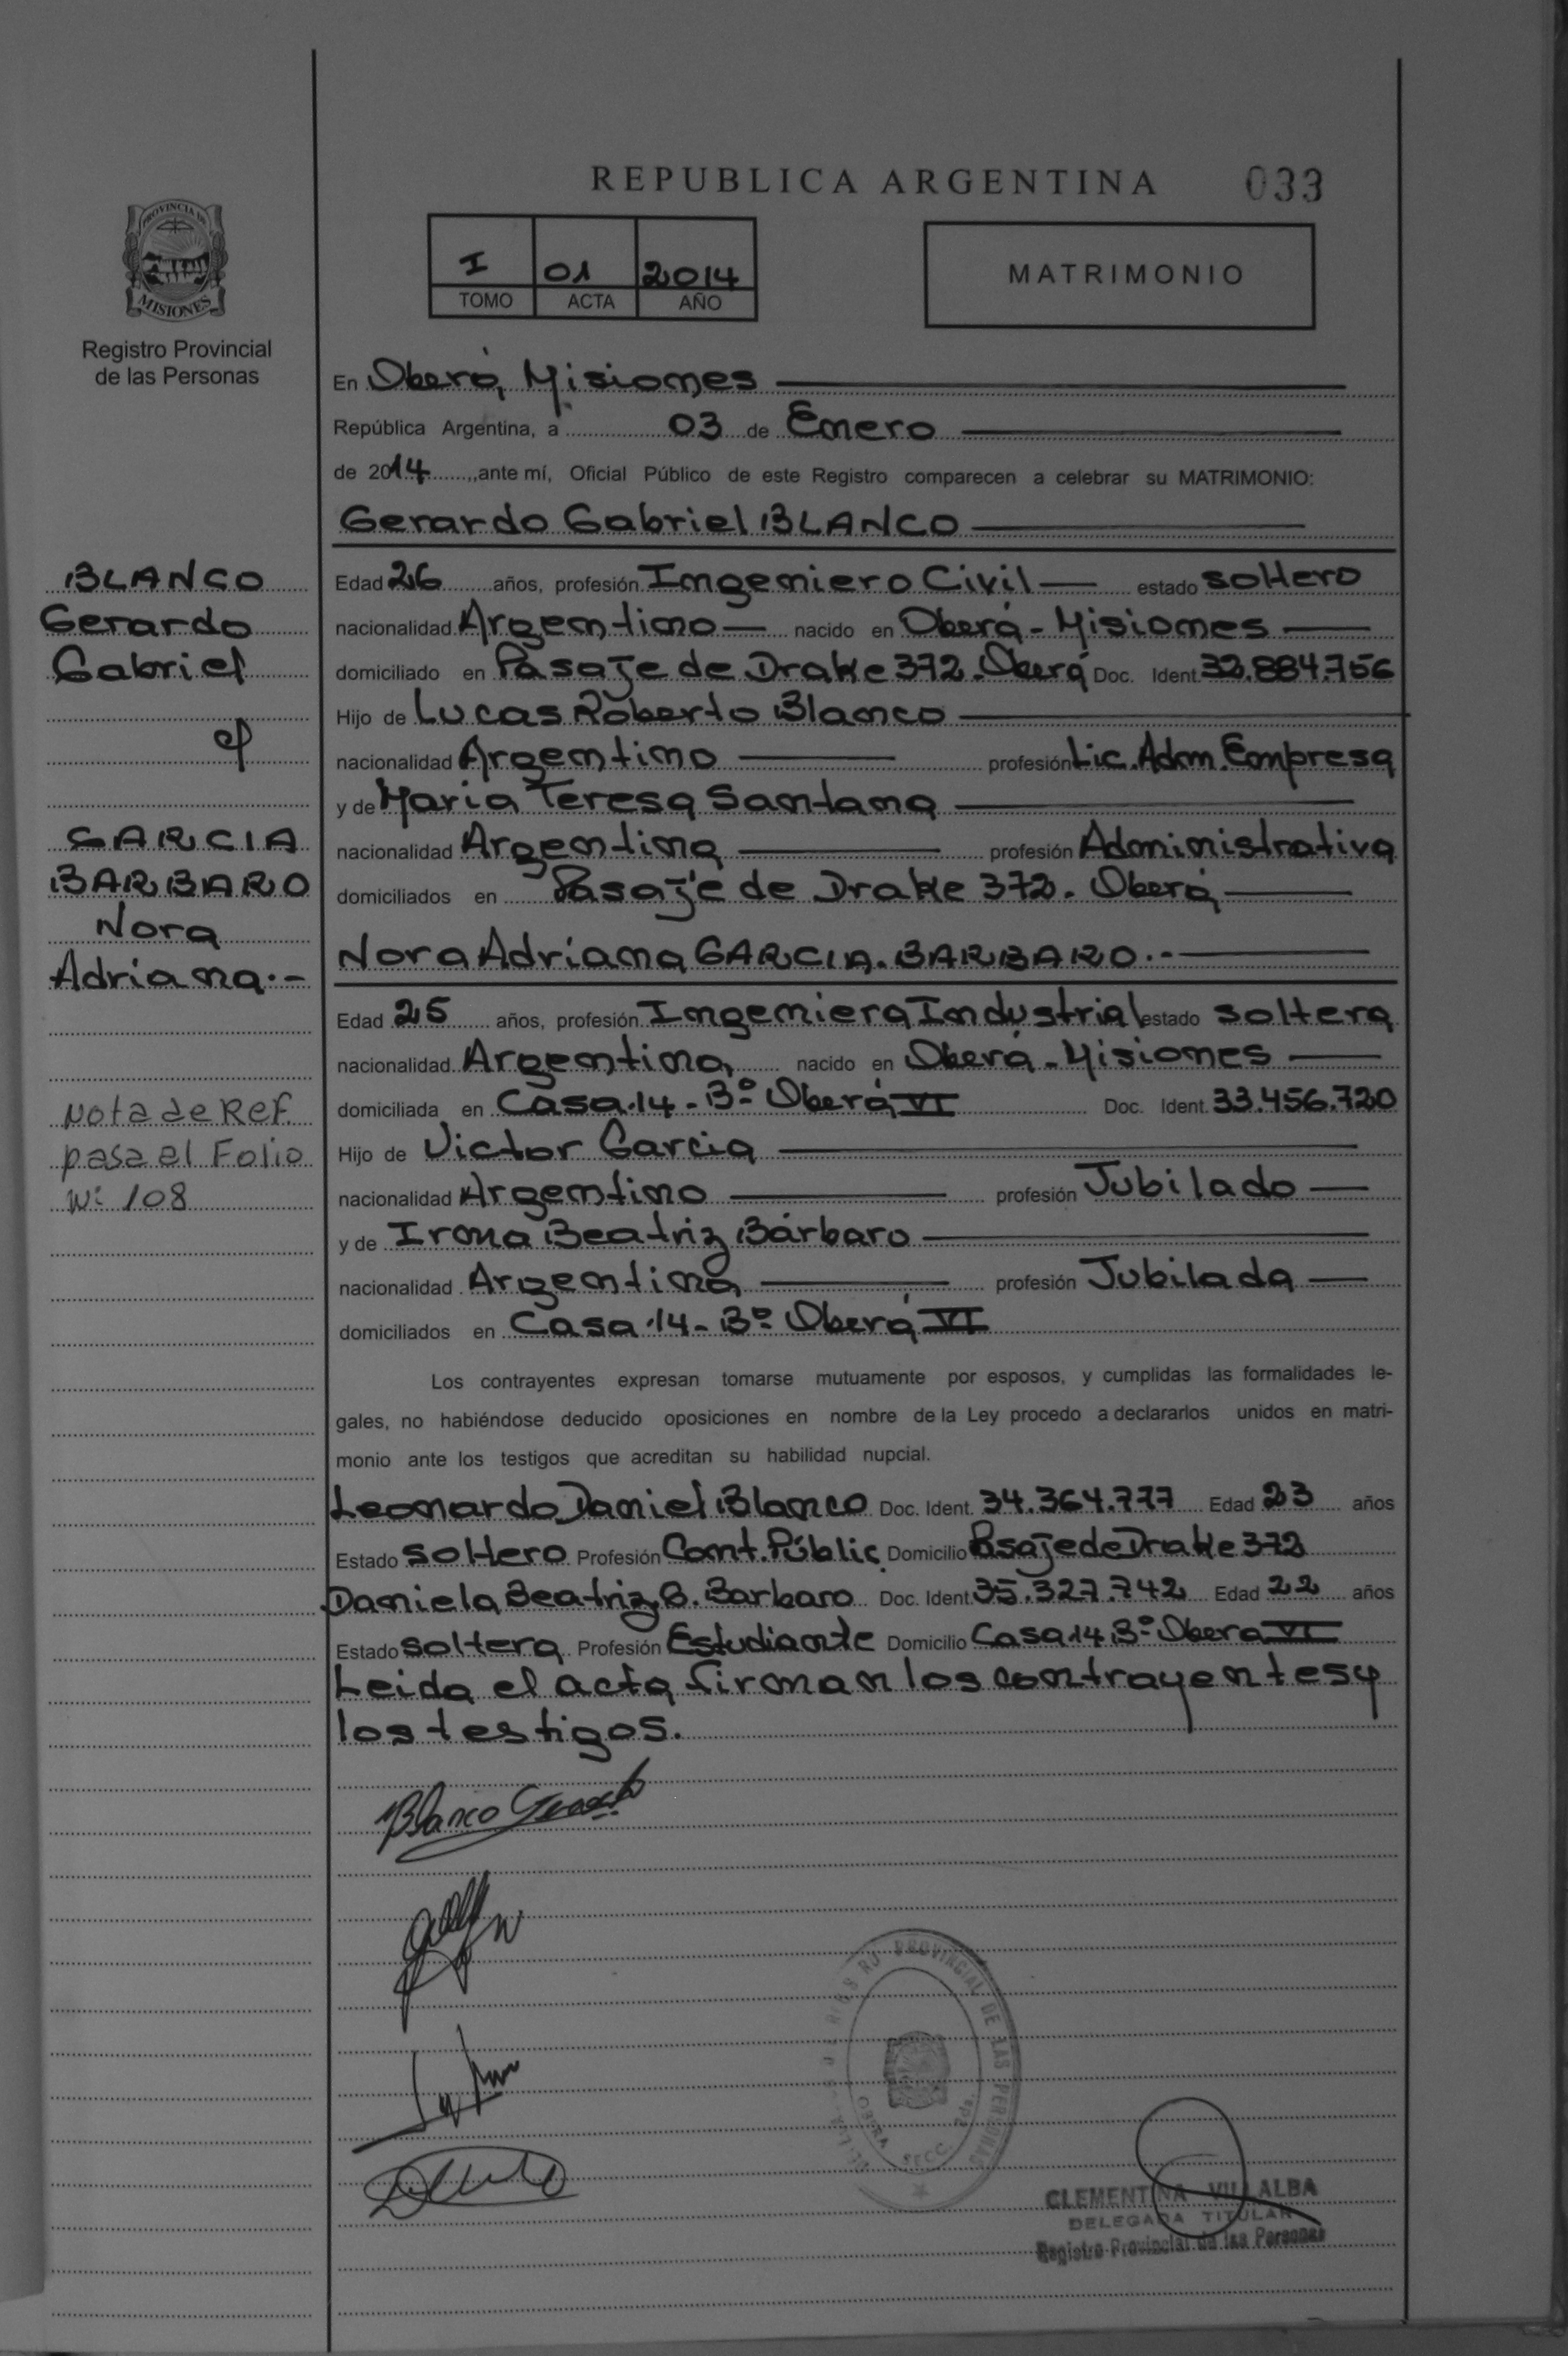 REPUBLICA ARGENTINA 033
PROVINCIA DE
MISIONES
Registro Provincial
de las Personas
I 01 2014
TOMO ACTA AÑO
MATRIMONIO
En Oberá, Misiones
República Argentina, a 03 de Enero
de 2014, ante mí, Oficial Público de este Registro comparecen a celebrar su MATRIMONIO:
Gerardo Gabriel BLANCO
BLANCO
Gerardo
Gabriel
GARCIA
BARBARO
Nora
Adriana.-
Nota de Ref.
pasa al Folio
Nº 108
Edad 26 años, profesión Ingeniero Civil estado soltero
nacionalidad Argentino nacido en Oberá - Misiones
domiciliado en Pasaje de Drake 372. Oberá Doc. Ident. 32.884.756
Hijo de Lucas Roberto Blanco
nacionalidad Argentino profesión Lic. Adm. Empresa
y de Maria Teresa Santana
nacionalidad Argentina profesión Administrativa
domiciliados en Pasaje de Drake 372. Oberá
Nora Adriana GARCIA. BARBARO.-
Edad 25 años, profesión Ingeniera Industrial estado soltera
nacionalidad Argentina, nacido en Oberá - Misiones
domiciliada en Casa 14 - Bº Oberá VI Doc. Ident. 33.456.720
Hijo de Victor Garcia
nacionalidad Argentino profesión Jubilado
y de Irma Beatriz Bárbaro
nacionalidad Argentina profesión Jubilada
domiciliados en Casa 14 - Bº Oberá VI
Los contrayentes expresan tomarse mutuamente por esposos, y cumplidas las formalidades le-
gales, no habiéndose deducido oposiciones en nombre de la Ley procedo a declararlos unidos en matri-
monio ante los testigos que acreditan su habilidad nupcial.
Leonardo Daniel Blanco Doc. Ident. 34.364.777 Edad 23 años
Estado soltero Profesión Cont. Públic. Domicilio Pasaje de Drake 372
Daniela Beatriz G. Barbaro Doc. Ident. 35.327.742 Edad 22 años
Estado soltera Profesión Estudiante Domicilio Casa 14 Bº Obera VI
Leida el acta firman los contrayentes y
los testigos.
Blanco Gerardo
PROVINCIAL DE LAS PERSONAS
SECC.
CLEMENTINA VILLALBA
DELEGADA TITULAR
Registro Provincial de las Personas